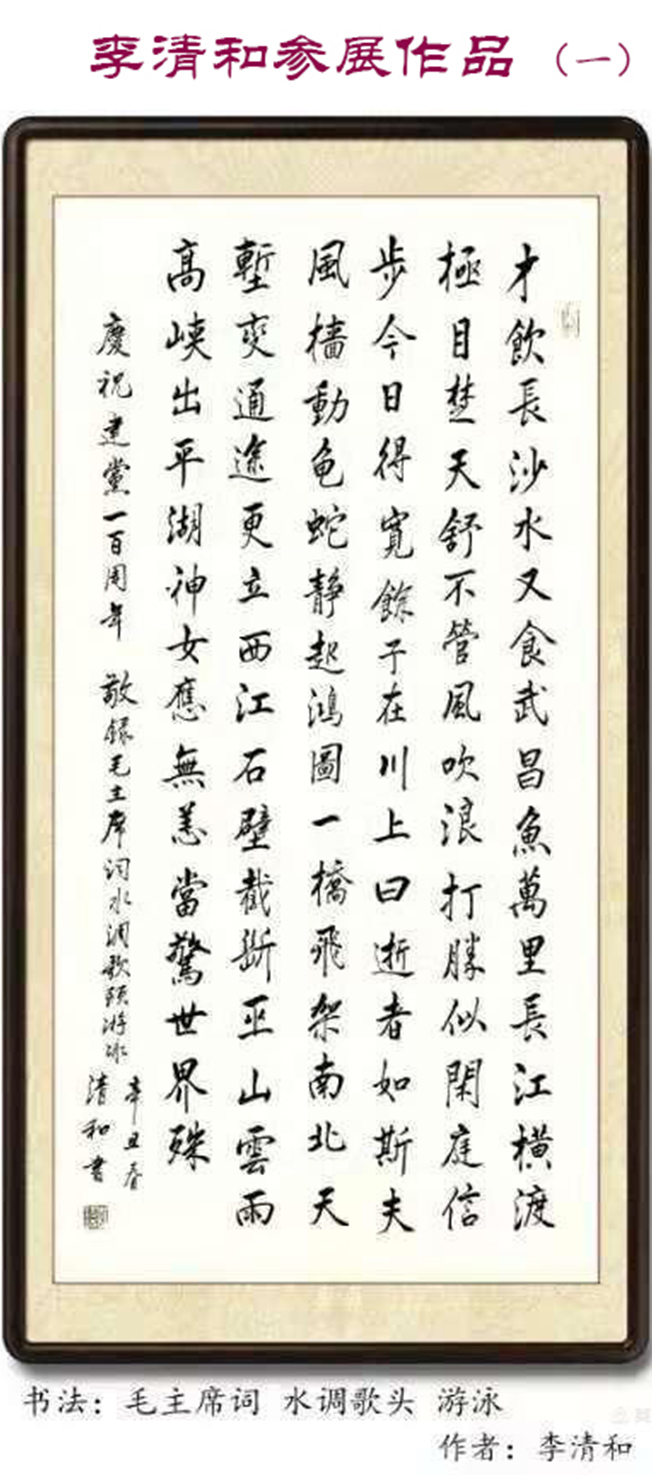 李清和参展作品（一）
才飲長沙水又食武昌魚萬里長江橫渡
極目楚天舒不管風吹浪打勝似閑庭信
步今日得寬餘子在川上曰逝者如斯夫
風檣動龟蛇靜起鴻圖一橋飛架南北天
塹变通途更立西江石壁截斷巫山雲雨
高峡出平湖神女應無恙當驚世界殊
慶祝建黨一百周年 敬録毛主席词水调歌頭游泳
辛丑春
清和書
书法：毛主席词 水调歌头 游泳
作者：李清和